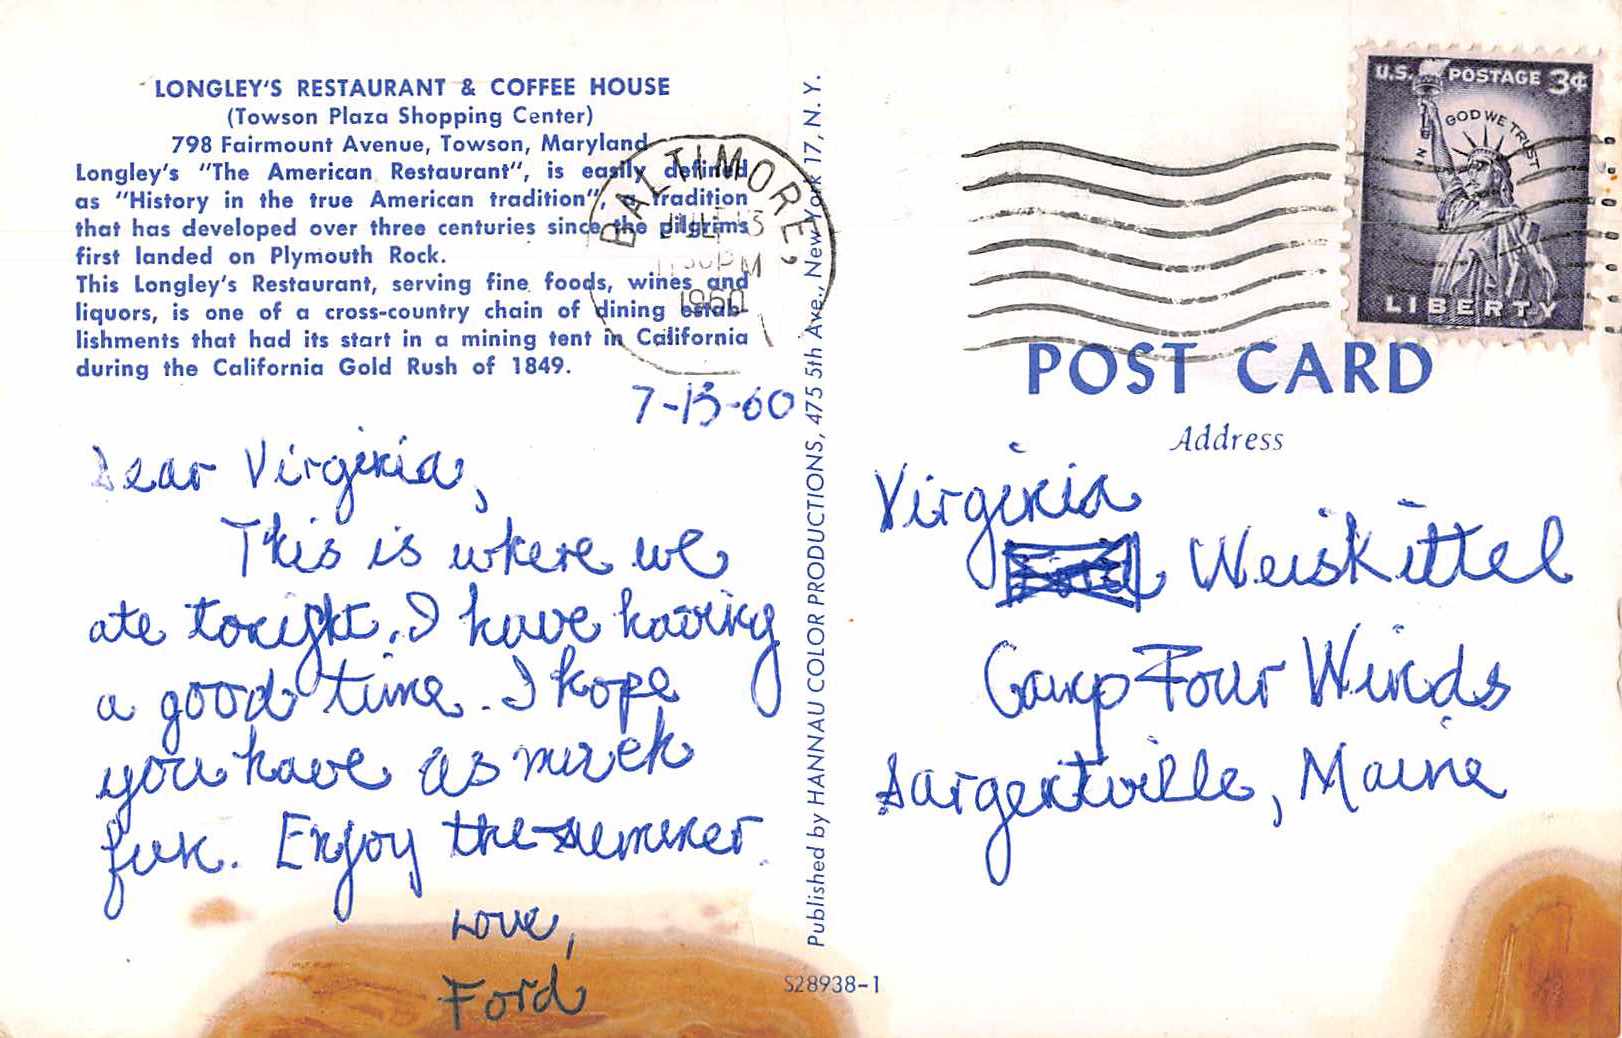 LONGLEY'S RESTAURANT & COFFEE HOUSE
(Towson Plaza Shopping Center)
798 Fairmount Avenue, Towson, Maryland
Longley's "The American Restaurant", is easily defined
as "History in the true American tradition", a tradition
that has developed over three centuries since the pilgrims
first landed on Plymouth Rock.
This Longley's Restaurant, serving fine foods, wines and
liquors, is one of a cross-country chain of dining estab-
lishments that had its start in a mining tent in California
during the California Gold Rush of 1849.
7-13-60
Dear Virginia,
This is where we
ate tonight. I have having
a good time. I hope
you have as much
fun. Enjoy the summer.
Love,
Ford
Published by HANNAU COLOR PRODUCTIONS, 475 5th Ave., New York 17, N. Y.
S28938-1
BALTIMORE,
JUL 13
PM
1960
U.S. POSTAGE 3¢
IN GOD WE TRUST
LIBERTY
POST CARD
Address
Virginia
Weiskittel
Camp Four Winds
Sargentville, Maine